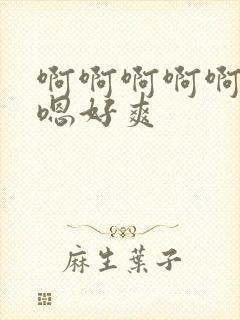 啊啊啊啊啊
嗯好爽
麻生葉子